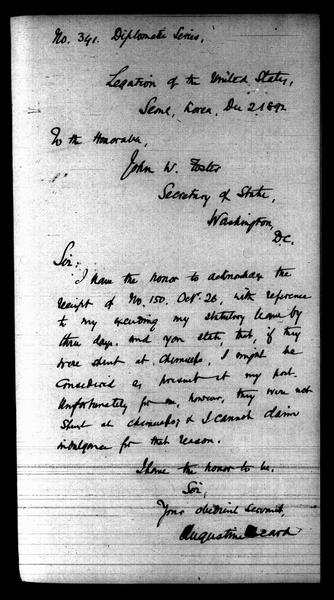 No. 391. Diplomatic Series.
Legation of the United States,
Seoul, Korea, Dec 2 1892
To the Honorable,
John W. Foster
Secretary of State,
Washington,
D.C.
Sir:
I have the honor to acknowledge the
receipt of No. 150, Oct. 26, with reference
to my exceeding my statutory leave by
three days, and you state that, if they
were spent at Chemulpo, I might be
considered as present at my post.
Unfortunately for me, however, they were not
spent at Chemulpo; & I cannot claim
indulgence for that reason.
I have the honor to be,
Sir,
Your obedient servant,
Augustine Heard